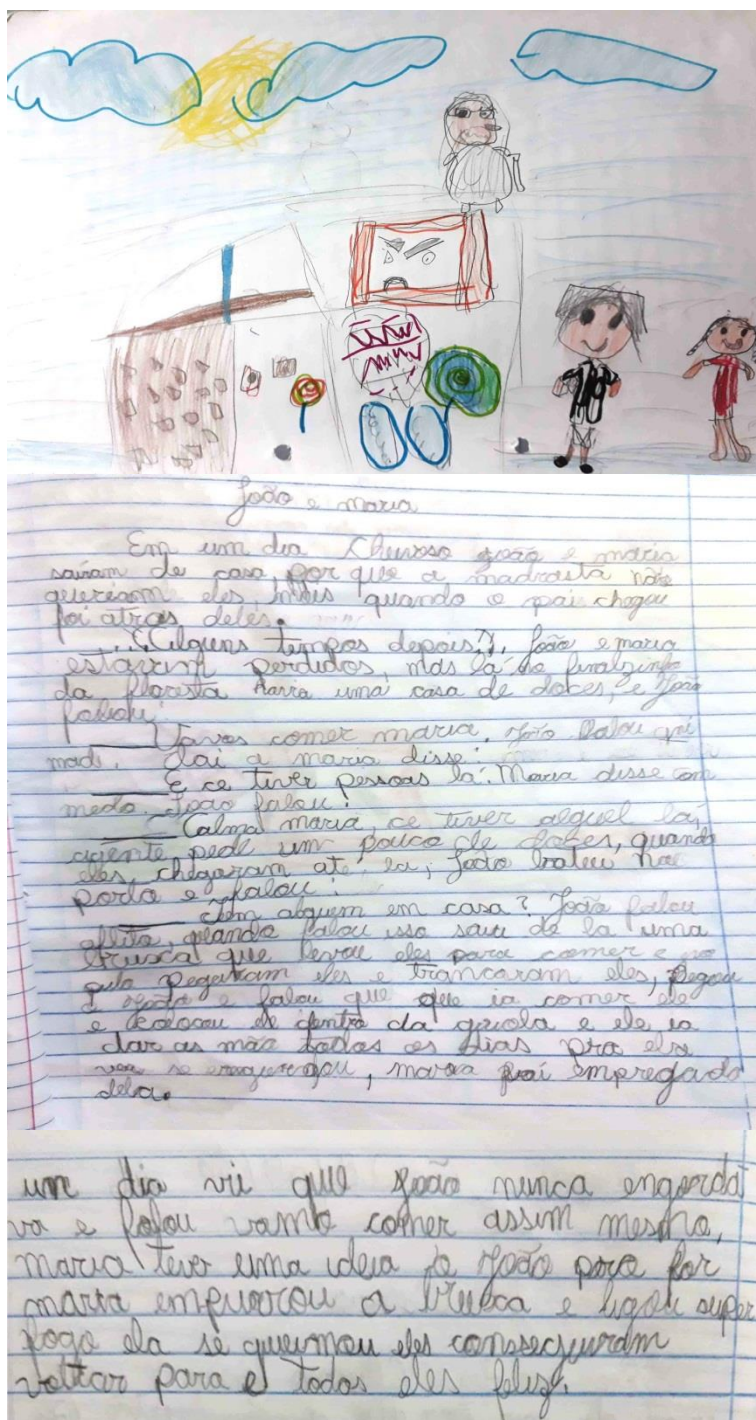 João e maria
Em um dia Chuvoso joão e maria
sairam de casa, por que a madrasta não
queriam eles, mais quando o pai chegou
foi atras deles.
Alguns tempos depois, João e maria
estavam perdidos, mas lá no finalzinho
da floresta havia uma casa de doces, e João
falou:
Vamos comer maria. João falou
dai a maria disse:
E ce tiver pessoas lá. Maria disse com
medo. João falou:
Calma maria, ce tiver alguel lá,
agente pede um pouco de doces, quando
eles, chegaram até la, João bateu na
porta e falou:
Tem alguem em casa? João falou
aflito, quando falou isso saiu de la uma
bruxa que levou eles para comer e no
pulo pegaram eles e trancaram eles, pegou
o João e falou que que ia comer ele
e colocou de dentro da gaiola e ele ia
dar as mão todos os dias pra ela
ver se, maria foi empregada
dela.
um dia vii que João nunca engorda
va e falou vamo comer assim mesmo,
maria teve uma ideia João por
maria empurrou a bruxa e ligou super
fogo ela se queimou eles conssecguiram
voltar para e todos eles feliz.